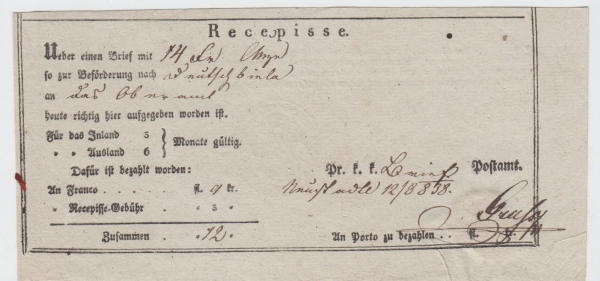 Recepisse.
Ueber einen Brief mit 14 Fr
so zur Beförderung nach Deutschbiela
an das Oberamt
heute richtig hier aufgegeben worden ist.
Für das Inland 3
„ „ Ausland 6 } Monate gültig.
Dafür ist bezahlt worden: Pr. k. k. Brief Postamt.
An Franco . . . . . fl. 9 kr. 12/8 838.
„ Recepisse-Gebühr . „ 3 „
Zusammen . „ 12 „ An Porto zu bezahlen . . fl. kr.